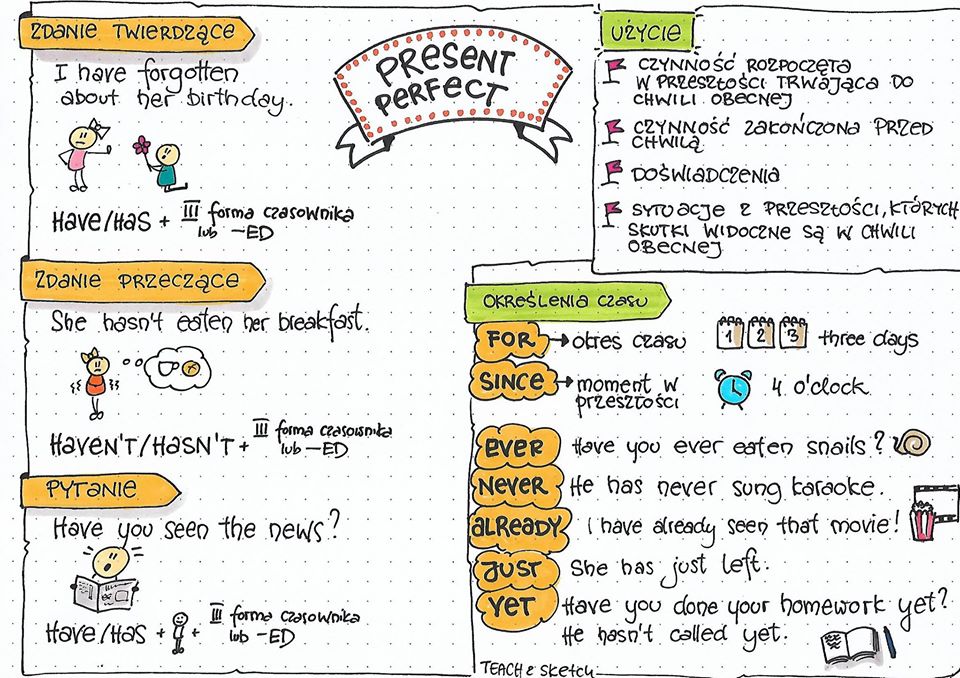 PRESENT
PERFECT
ZDANIE TWIERDZĄCE
I have forgotten
about her birthday.
HAVE/HAS + III forma czasownika
lub -ED
ZDANIE PRZECZĄCE
She hasn't eaten her breakfast.
HAVEN'T/HASN'T + III forma czasownika
lub -ED
PYTANIE
Have you seen the news?
HAVE/HAS + + III forma czasownika
lub -ED
UŻYCIE
CZYNNOŚĆ ROZPOCZĘTA
W PRZESZŁOŚCI TRWAJĄCA DO
CHWILI OBECNEJ
CZYNNOŚĆ ZAKOŃCZONA PRZED
CHWILĄ
DOŚWIADCZENIA
SYTUACJE Z PRZESZŁOŚCI, KTÓRYCH
SKUTKI WIDOCZNE SĄ W CHWILI
OBECNEJ
OKREŚLENIA CZASU
FOR → okres czasu 1 2 3 three days
SINCE → moment w
przeszłości 4 o'clock
EVER Have you ever eaten snails?
NEVER He has never sung karaoke.
ALREADY I have already seen that movie!
JUST She has just left.
YET Have you done your homework yet?
He hasn't called yet.
TEACH & SKETCH